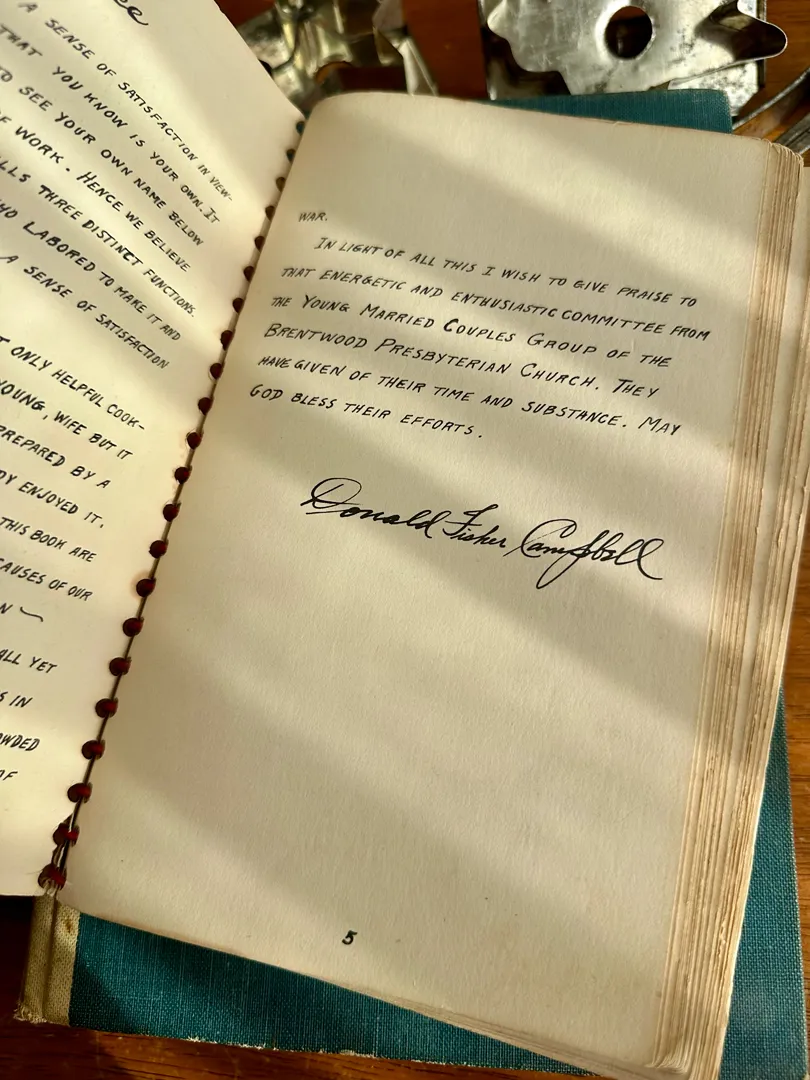 A SENSE OF SATISFACTION IN VIEW-
THAT YOU KNOW IS YOUR OWN. IT
TO SEE YOUR OWN NAME BELOW
OF WORK. HENCE WE BELIEVE
THREE DISTINCT FUNCTIONS.
LABORED TO MAKE IT AND
A SENSE OF SATISFACTION
ONLY HELPFUL COOK-
YOUNG, WIFE BUT IT
PREPARED BY A
ENJOYED IT.
THIS BOOK ARE
OF OUR
ALL YET
IN
OF
WAR.
IN LIGHT OF ALL THIS I WISH TO GIVE PRAISE TO
THAT ENERGETIC AND ENTHUSIASTIC COMMITTEE FROM
THE YOUNG MARRIED COUPLES GROUP OF THE
BRENTWOOD PRESBYTERIAN CHURCH. THEY
HAVE GIVEN OF THEIR TIME AND SUBSTANCE. MAY
GOD BLESS THEIR EFFORTS.
Donald Fisher Campbell
5